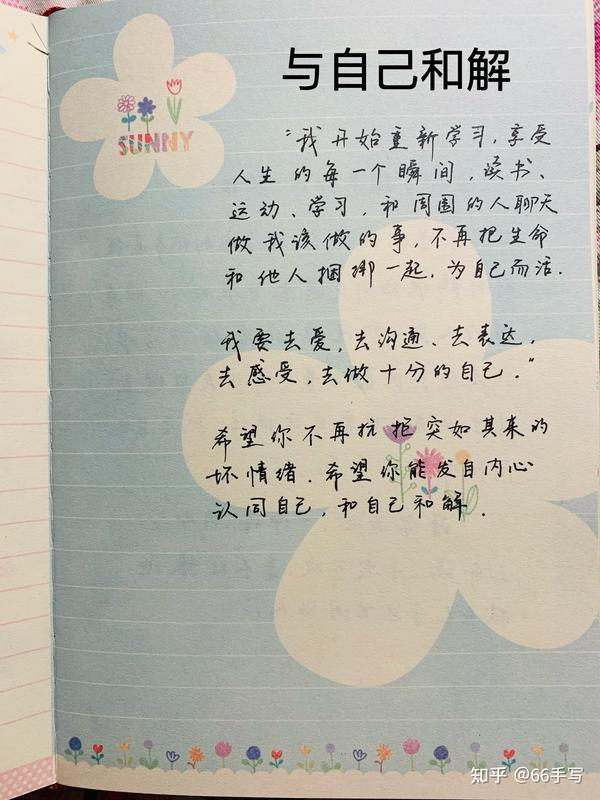 SUNNY
与自己和解
“我开始重新学习,享受
人生的每一个瞬间,读书、
运动、学习,和周围的人聊天
做我该做的事,不再把生命
和他人捆绑一起,为自己而活.
我要去爱,去沟通、去表达,
去感受,去做十分的自己.”
希望你不再抗拒突如其来的
坏情绪.希望你能发自内心
认同自己,和自己和解.
知乎 @66手写